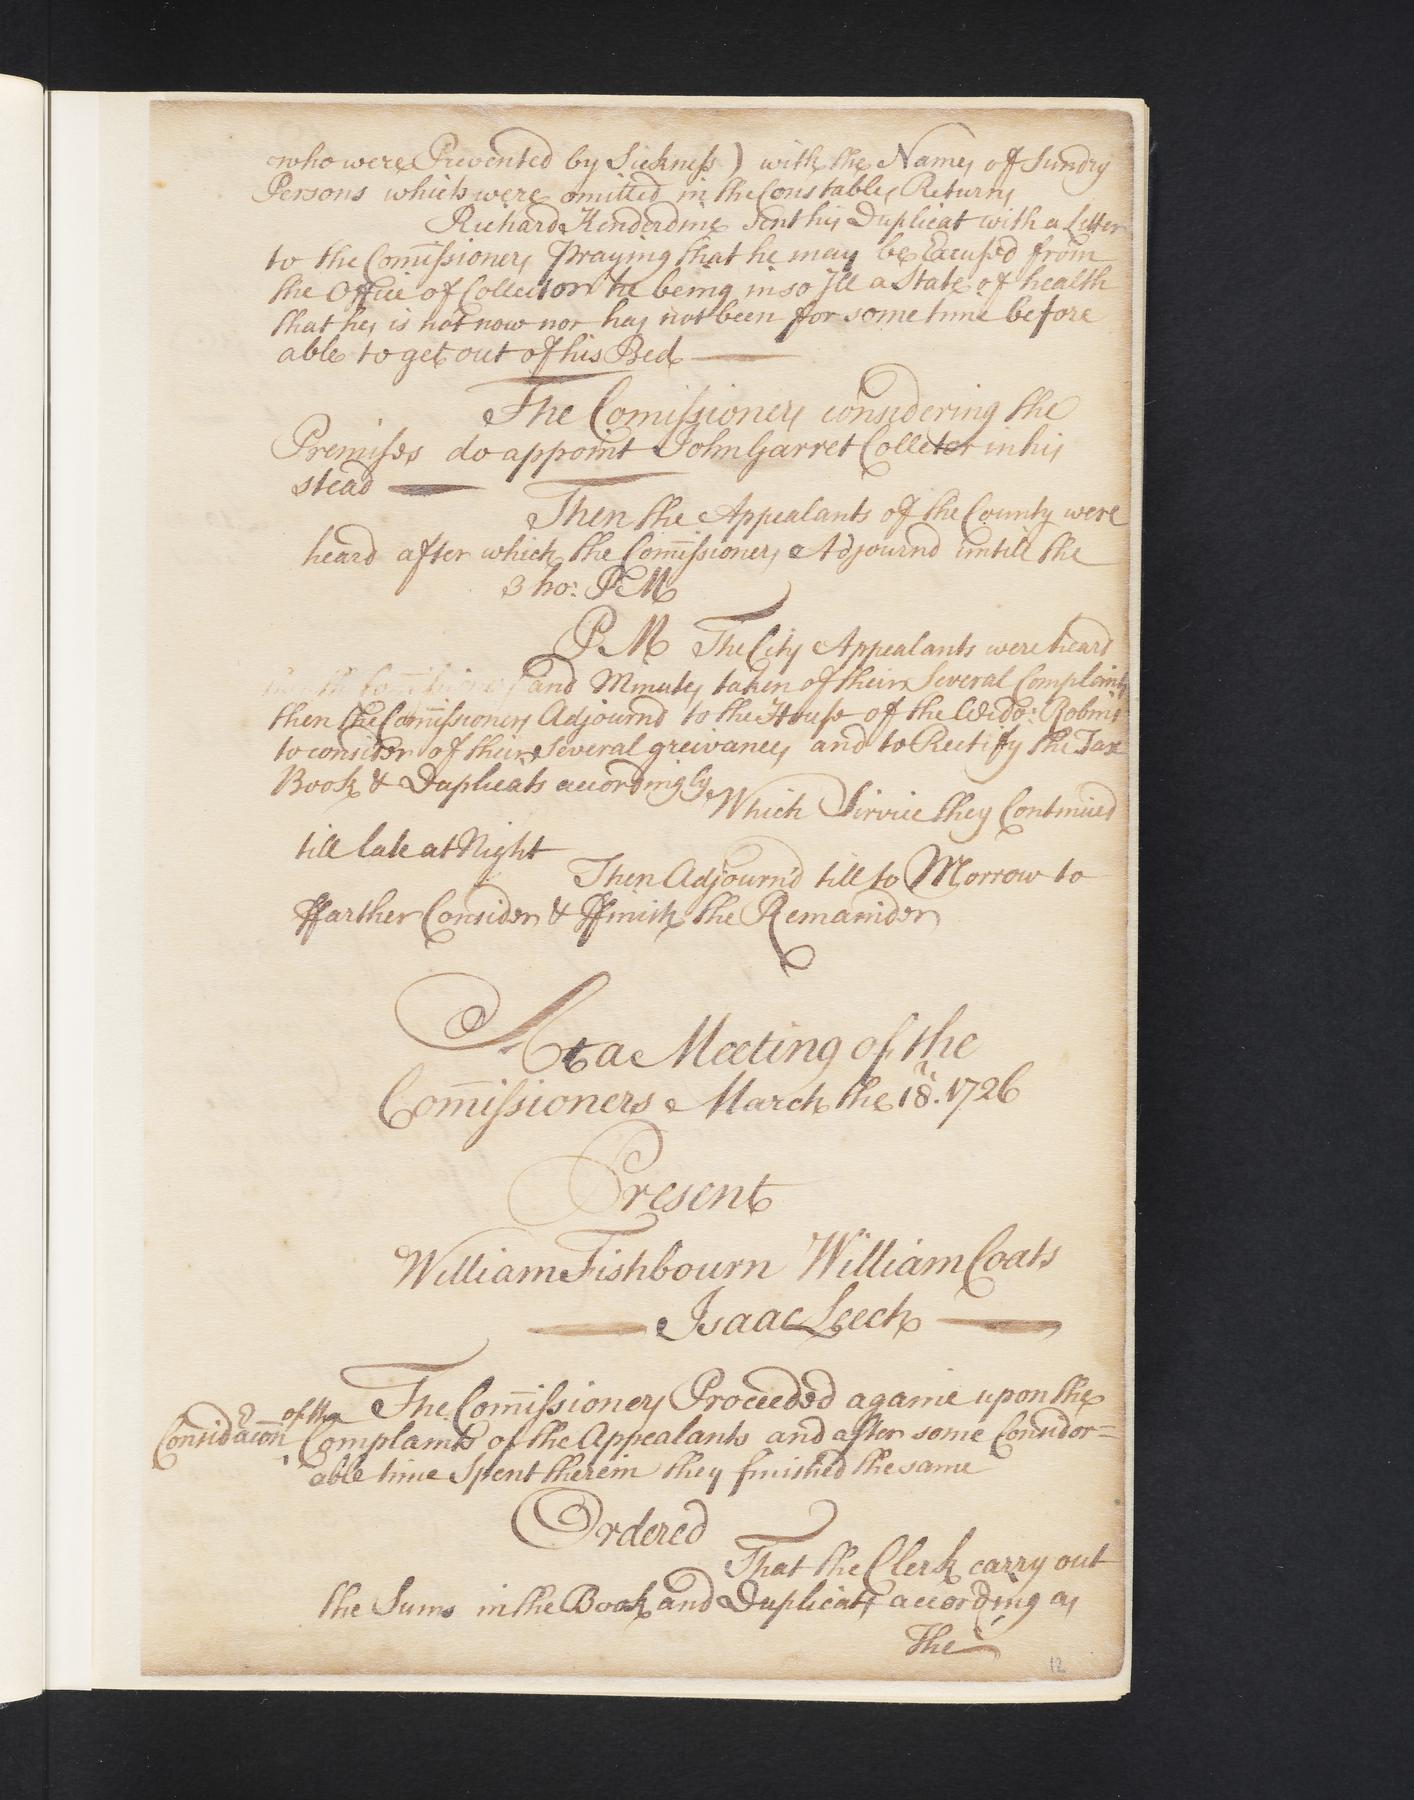 who were Prevented by Sickness) with the Names of Sundry
Persons which were omitted in the Constables Returns
Richard Kenderdine sent his Duplicat with a Letter
to the Com̄issioners Praying that he may be Excused from
the Office of Collector he being in so Ill a State of health
that he is not now nor has not been for some time before
able to get out of his Bed
The Comissioners considering the
Premises do appoint John Garret Collector in his
stead
Then the Appealants of the County were
heard after which the Com̄issioners Adjournd untill the
3 ho: P M
P M The City Appealants were heard
and Minutes taken of their Several Complaints
then the Com̄issioners Adjournd to the House of the Wido: Robins
to consider of their Several greivances and to Rectify the Tax
Book & Duplicats accordingly
Which Service they Continued
till late at Night
Then Adjourn'd till to Morrow to
ffarther Consider & ffinish the Remainder
At a Meeting of the
Com̄issioners March the 18th. 1726
Present
William Fishbourn William Coats
Isaac Leech
The Com̄issioners Proceeded againe upon the
Considacōn of the Complaints of the Appealants and after some Consider=
able time Spent therein they finished the same
Ordered
That the Clerk carry out
the Sums in the Book and Duplicats according as
The
12